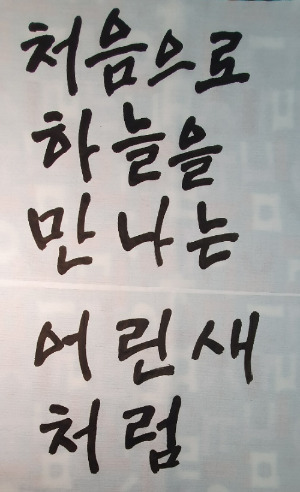 처음으로
하늘을
만나는
어린새
처럼